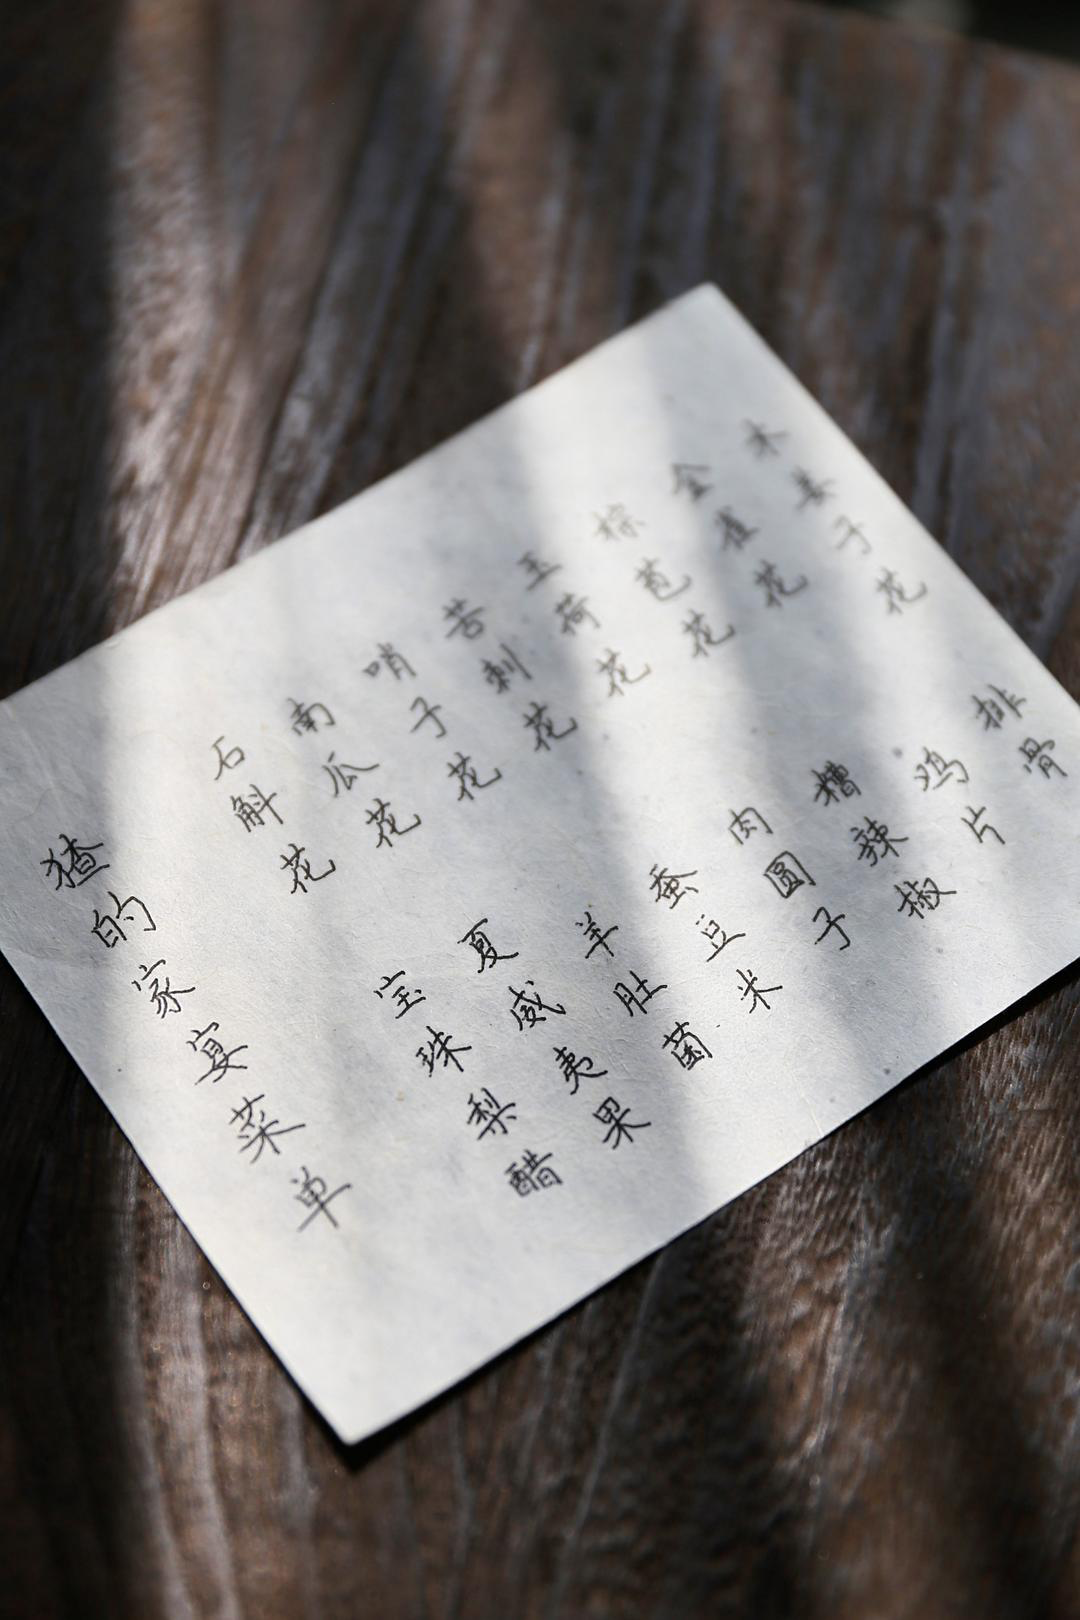 猹的家宴菜单
石斛花 宝珠梨醋
南瓜花 夏威夷果
哨子花 羊肚菌
苦刺花 蚕豆米
玉荷花 肉圆子
棕苞花 糟辣椒
金雀花 鸡片
木姜子花 排骨